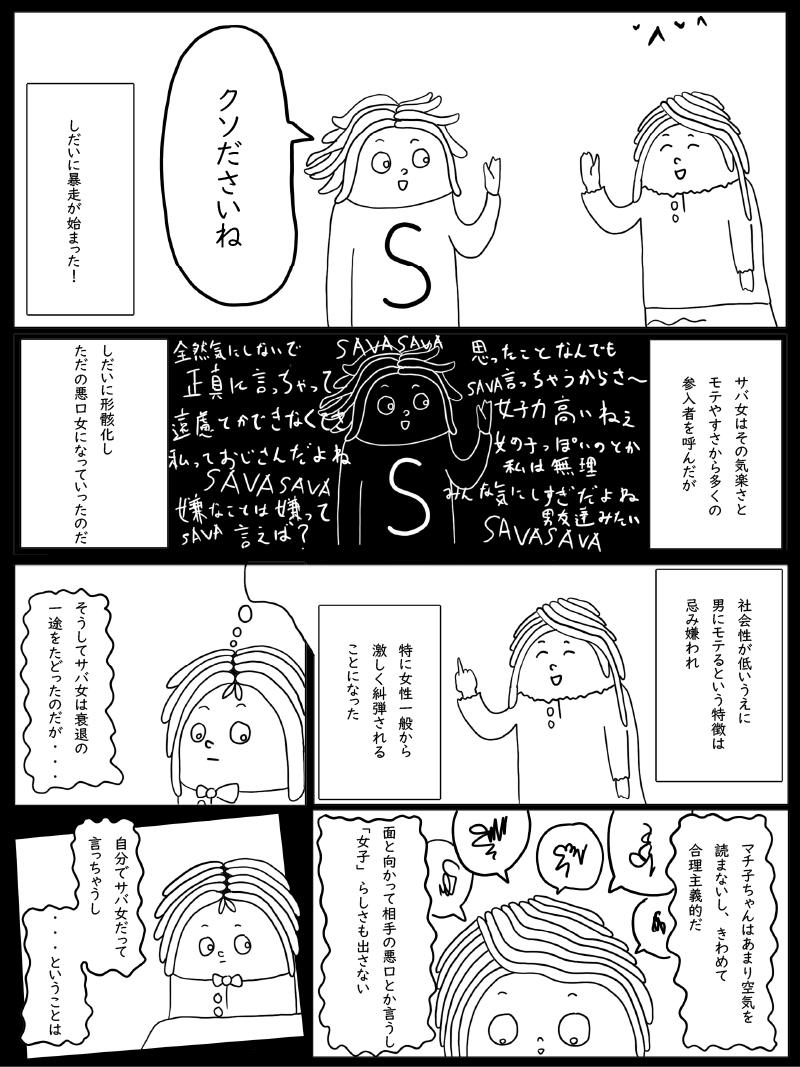 クソださいね
S
しだいに暴走が始まった！
サバ女はその気楽さと
モテやすさから多くの
参入者を呼んだが
思ったことなんでも
SAVA言っちゃうからさ〜
女子力高いねぇ
女の子っぽいのとか
私は無理
みんな気にしすぎだよね
男友達みたい
SAVASAVA
SAVASAVA
S
全然気にしないで
正直に言っちゃって
遠慮とかできなくてさ
私っておじさんだよね
SAVASAVA
嫌なことは嫌って
SAVA 言えば？
しだいに形骸化し
ただの悪口女になっていったのだ
社会性が低いうえに
男にモテるという特徴は
忌み嫌われ
特に女性一般から
激しく糾弾される
ことになった
そうしてサバ女は衰退の
一途をたどったのだが・・・
マチ子ちゃんはあまり空気を
読まないし、きわめて
合理主義的だ
面と向かって相手の悪口とか言うし
「女子」らしさも出さない
自分でサバ女だって
言っちゃうし
・・・ということは